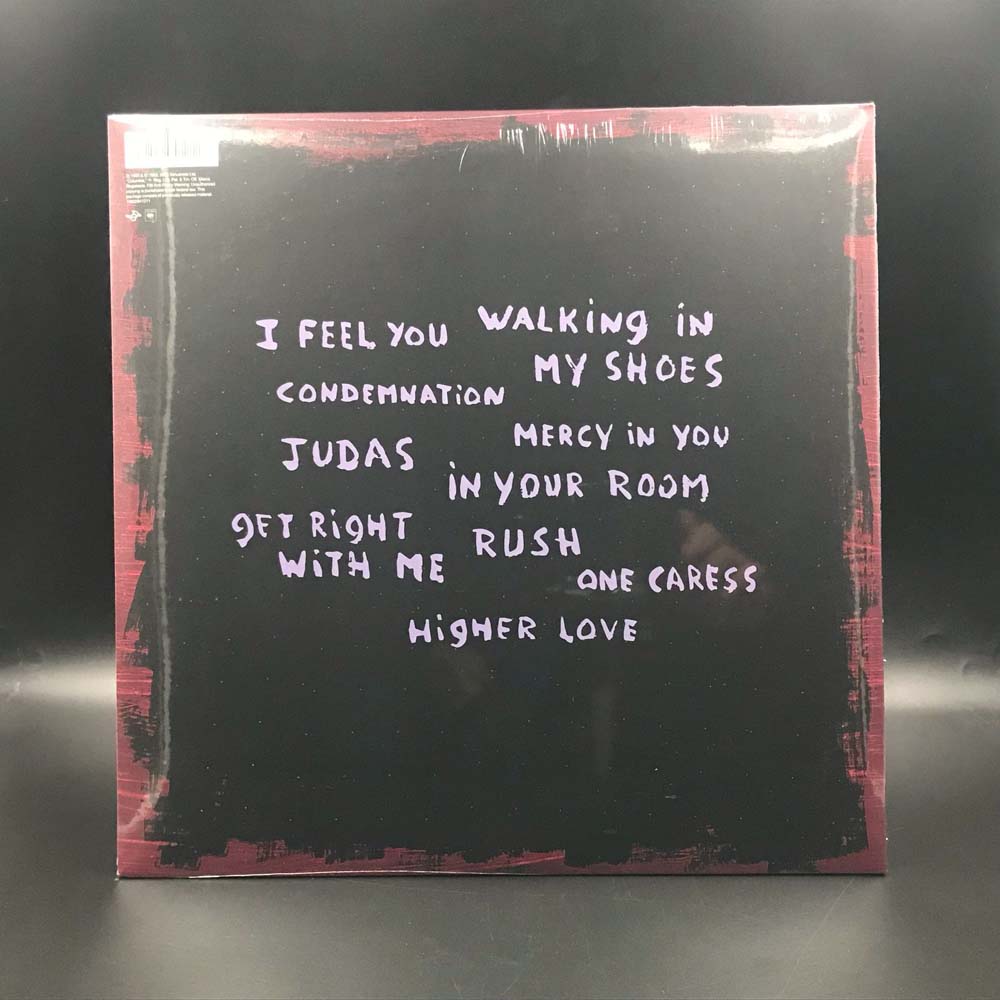 I FEEL YOU
WALKiNg iN
MY SHOES
CONDEMNATiON
JUDAS
MERCY iN YOU
iN YOUR ROOM
gET RigHT
WiTH ME
RUSH
ONE CARESS
HigHER LOVE